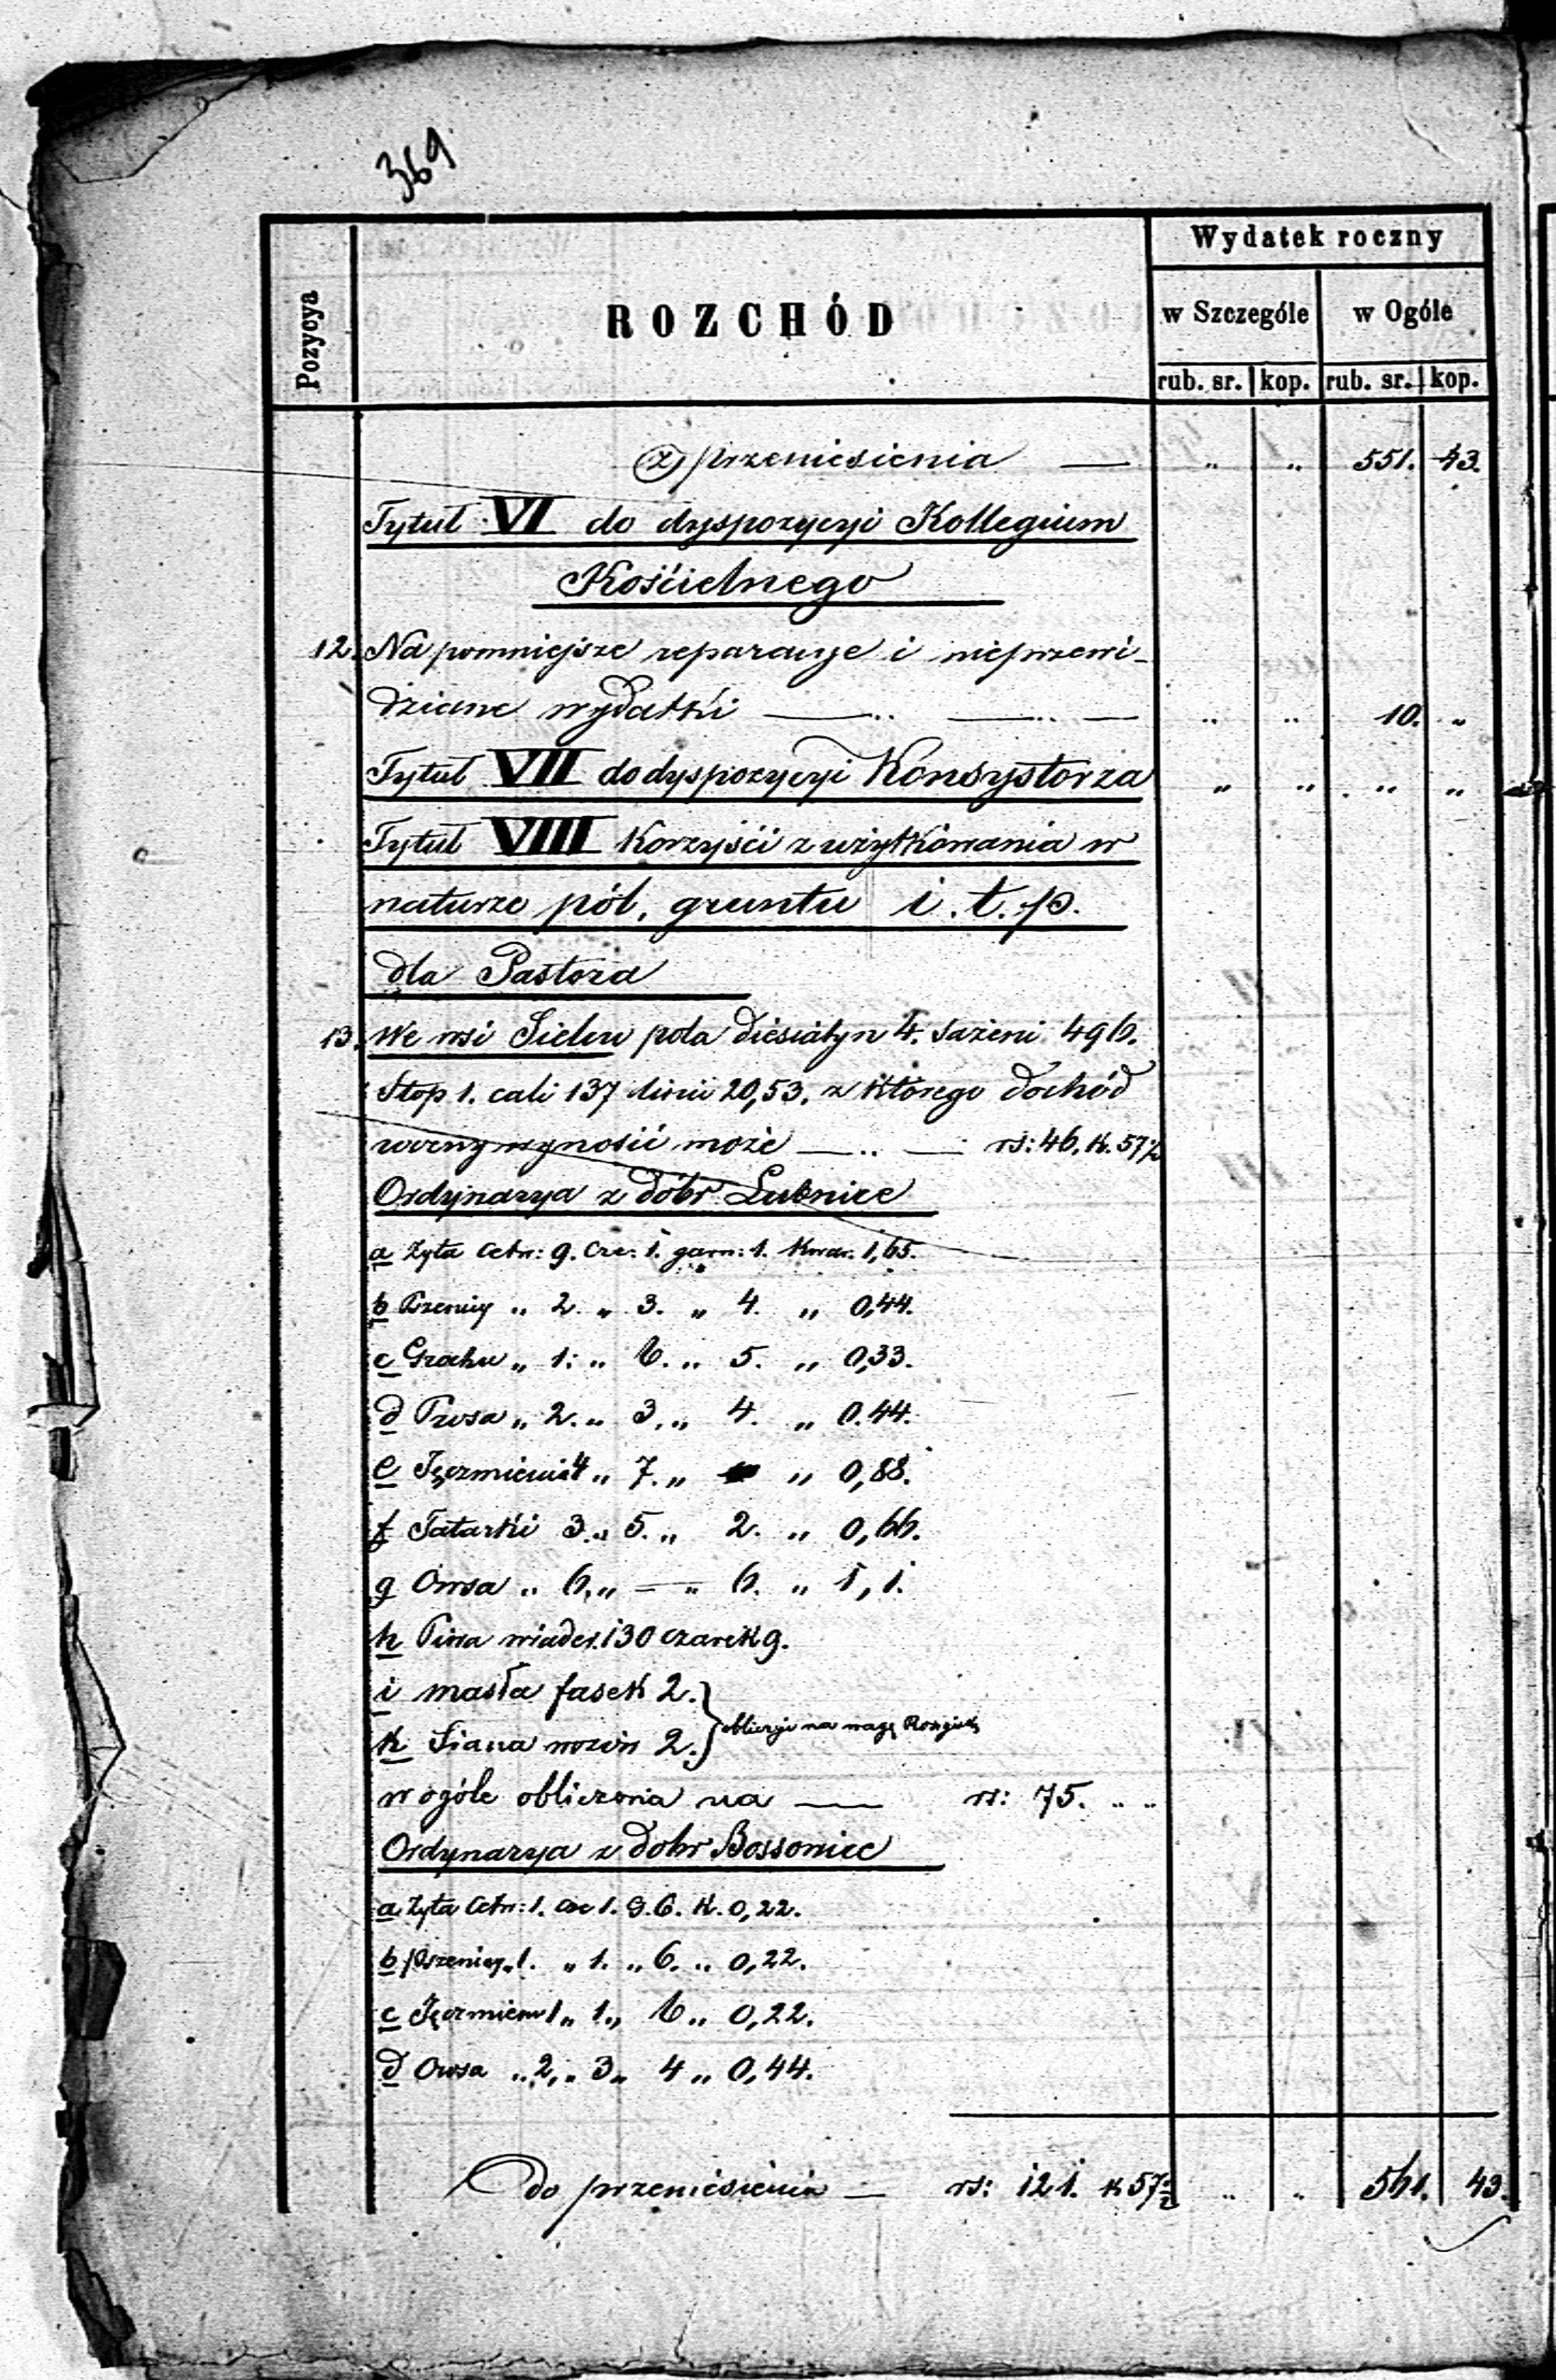 369
Pozycya
ROZCHÓD
Wydatek roczny
w Szczególe w Ogóle
rub. sr. kop. rub. sr. kop.
Z przeniesienia — „ „ 551. 43.
Tytuł VI do dyspozycyi Kollegium
Kościelnego
12. Na pomniejsze reparacye i nieprzewi-
dziane wydatki — „ — „ — „ „ 10. „
Tytuł VII do dyspozycyi Konsystorza „ „ „ „
Tytuł VIII Korzyści z użytkowania w
naturze pól, gruntu i. t. p.
dla Pastora
13. We wsi Sielcu pola diesiatyn 4. sażeni 496.
Stop 1. cali 137 linii 20,53. z którego dochód
roczny wynosić może — „ — rs: 46. k. 57½
Ordynarya z dóbr Lubnice
a Żyta Cetw: 9. Cze: 1. garn: 1. kwar. 1,65.
b Pszenicy „ 2. „ 3. „ 4. „ 0,44.
c Grochu „ 1. „ 6. „ 5. „ 0,33.
d Prosa „ 2. „ 3. „ 4. „ 0.44.
e Jęczmienia 4 „ 7. „ „ 0,88.
f Tatarki 3. „ 5. „ 2. „ 0,66.
g Owsa „ 6. „ — „ 6. „ 1,1.
h Piwa wiader 130 czarek 9.
i masła fasek 2.
k Siana wozów 2. na wagę
w ogóle obliczona na — rs: 75. „ „
Ordynarya z dobr Bossowice
a Żyta Cetw: 1. cze 1. G. 6. K. 0,22.
b pszenicy „ 1. „ 1. „ 6. „ 0,22.
c Jęczmienia 1 „ 1. „ 6 „ 0,22.
d Owsa „ 2. „ 3 „ 4 „ 0,44.
Do przeniesienia — rs: 121. k 57½ „ „ 561. 43.